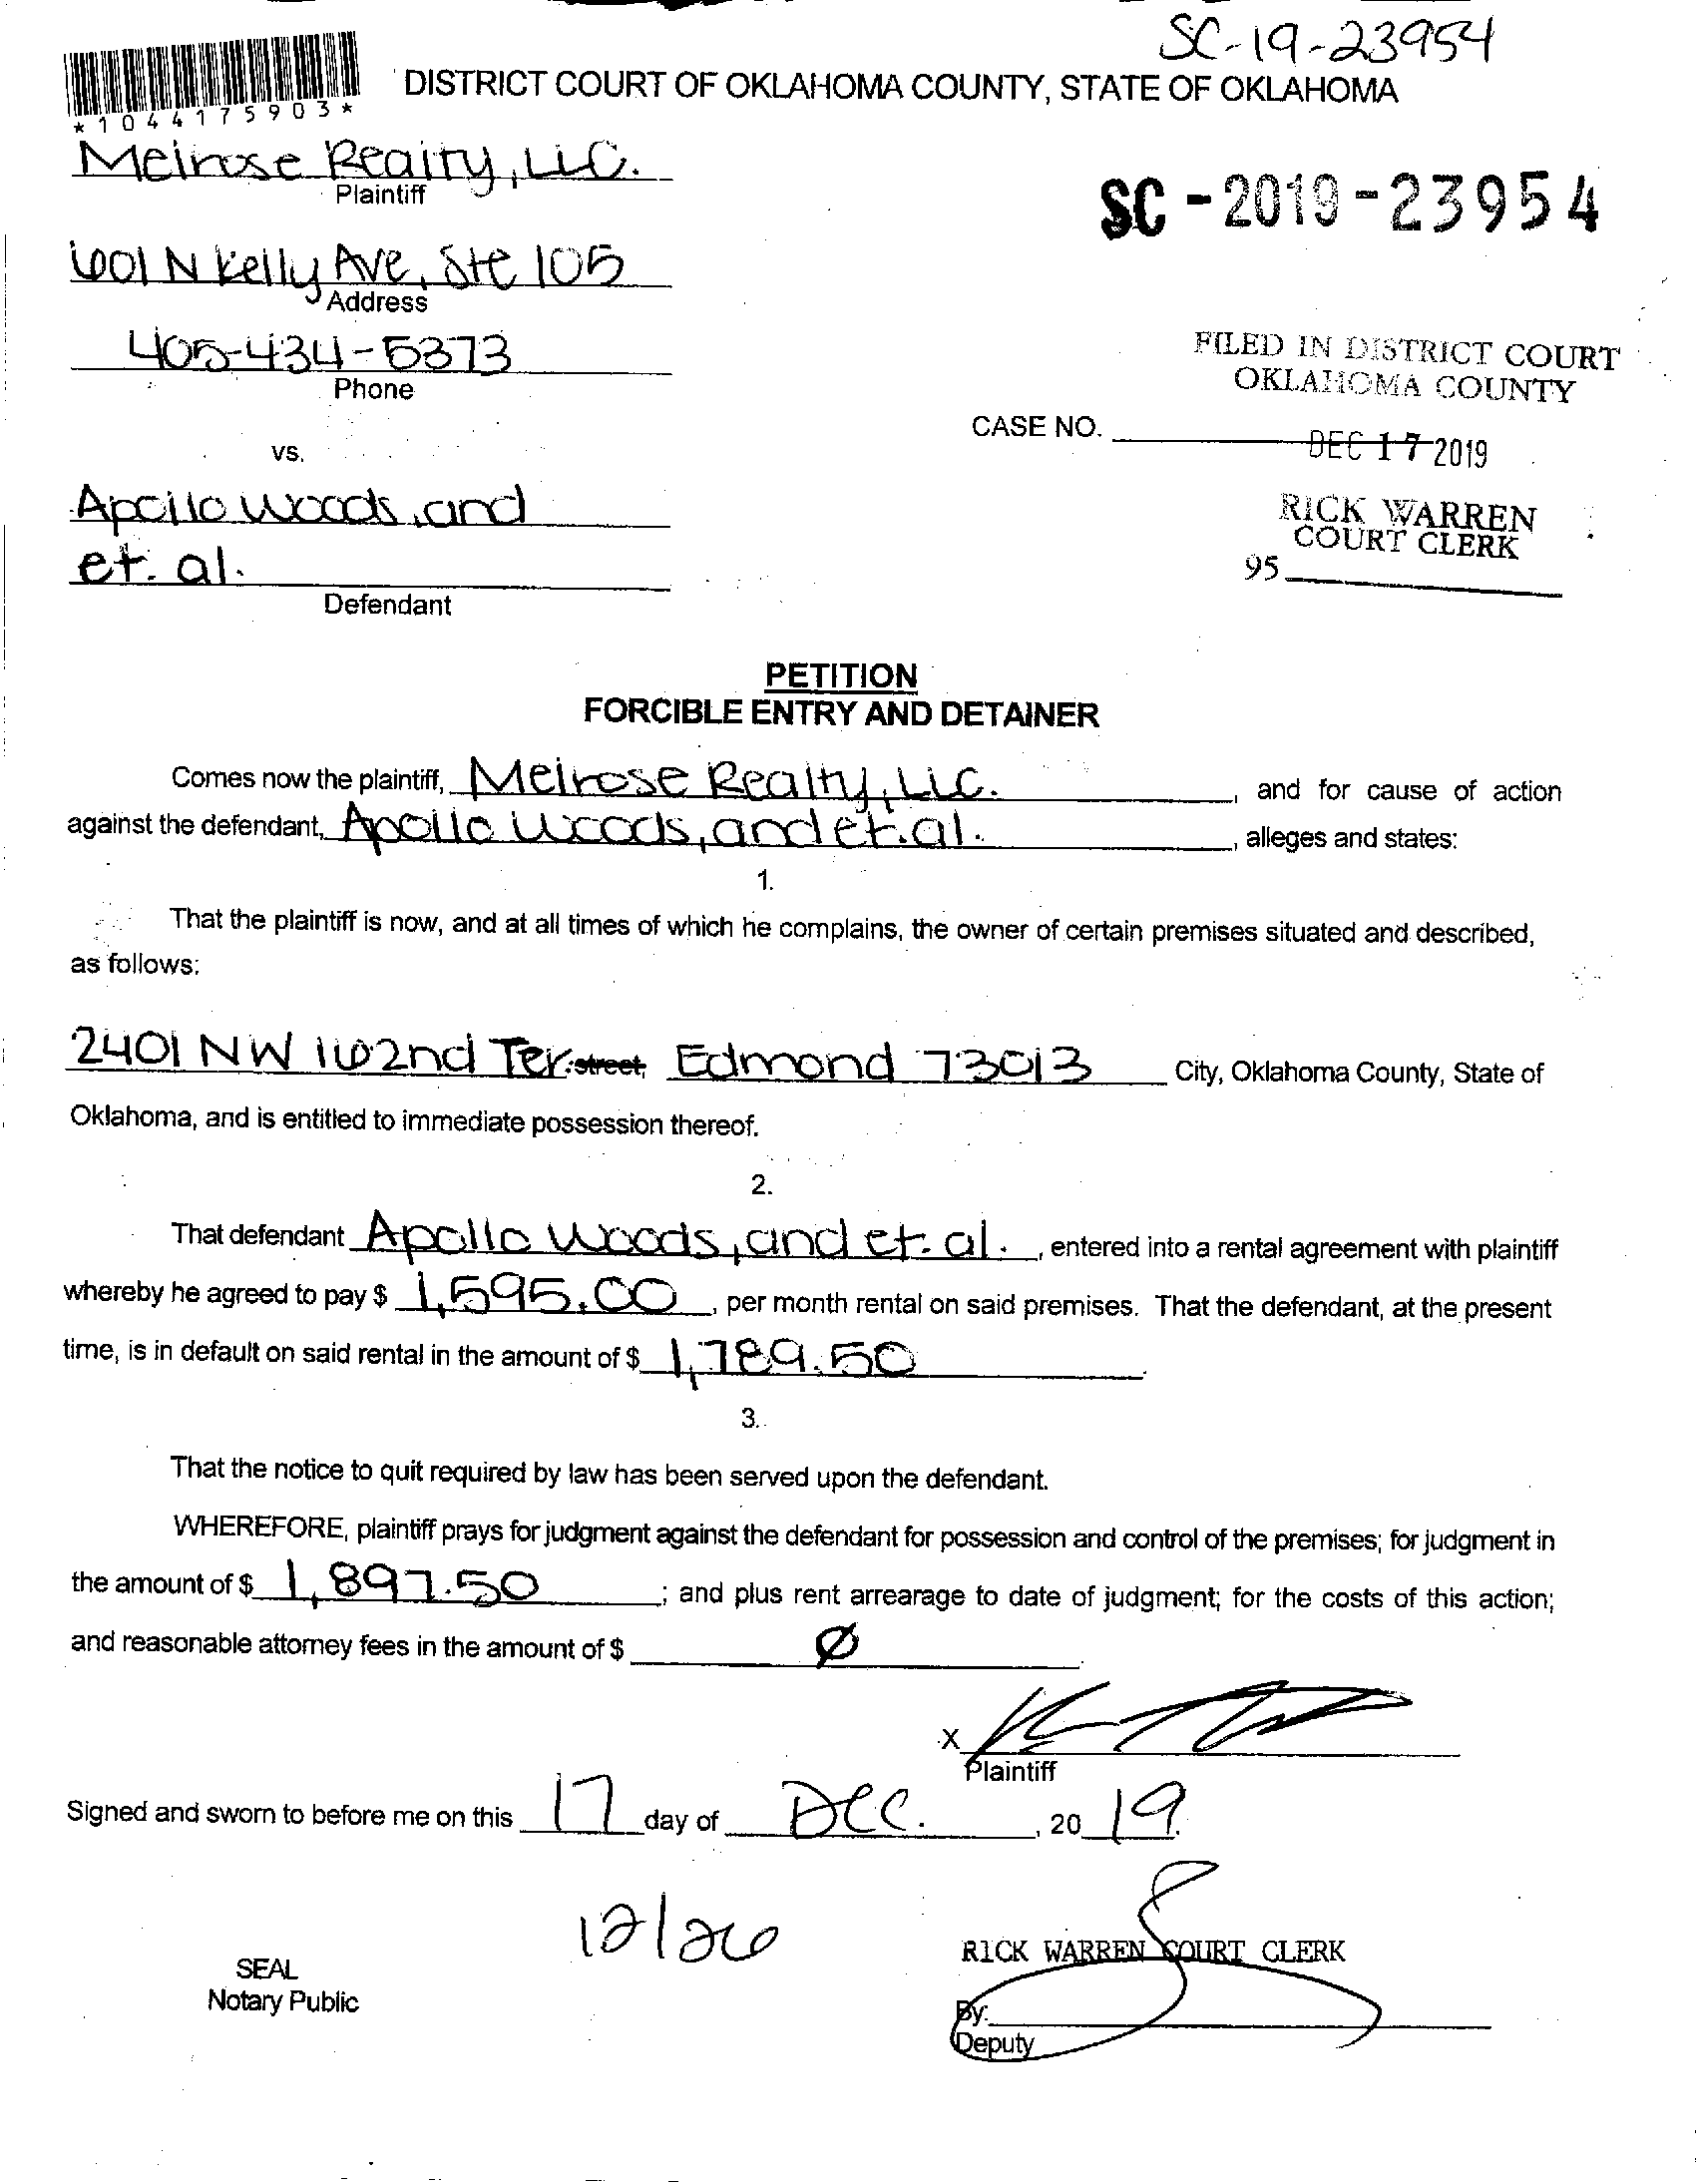 SC-19-23954
DISTRICT COURT OF OKLAHOMA COUNTY, STATE OF OKLAHOMA
*1044175903*
Melrose Realty, LLC.
Plaintiff
SC-2019-23954
601 N Kelly Ave, Ste 105
Address
405-434-5373
Phone
FILED IN DISTRICT COURT
OKLAHOMA COUNTY
CASE NO.
DEC 17 2019
vs.
Apollo Woods, and
et. al.
Defendant
RICK WARREN
COURT CLERK
95
PETITION
FORCIBLE ENTRY AND DETAINER
Comes now the plaintiff, Melrose Realty, LLC. , and for cause of action
against the defendant, Apollo Woods, and et. al. , alleges and states:
1.
That the plaintiff is now, and at all times of which he complains, the owner of certain premises situated and described,
as follows:
2401 NW 162nd Ter. street, Edmond 73013 City, Oklahoma County, State of
Oklahoma, and is entitled to immediate possession thereof.
2.
That defendant Apollo Woods, and et. al. , entered into a rental agreement with plaintiff
whereby he agreed to pay $ 1,595.00 , per month rental on said premises. That the defendant, at the present
time, is in default on said rental in the amount of $ 1,789.50 .
3.
That the notice to quit required by law has been served upon the defendant.
WHEREFORE, plaintiff prays for judgment against the defendant for possession and control of the premises; for judgment in
the amount of $ 1,897.50 ; and plus rent arrearage to date of judgment; for the costs of this action;
and reasonable attorney fees in the amount of $ Ø .
X
Plaintiff
Signed and sworn to before me on this 17 day of Dec. , 20 19.
12/26
SEAL
Notary Public
RICK WARREN COURT CLERK
By:
Deputy